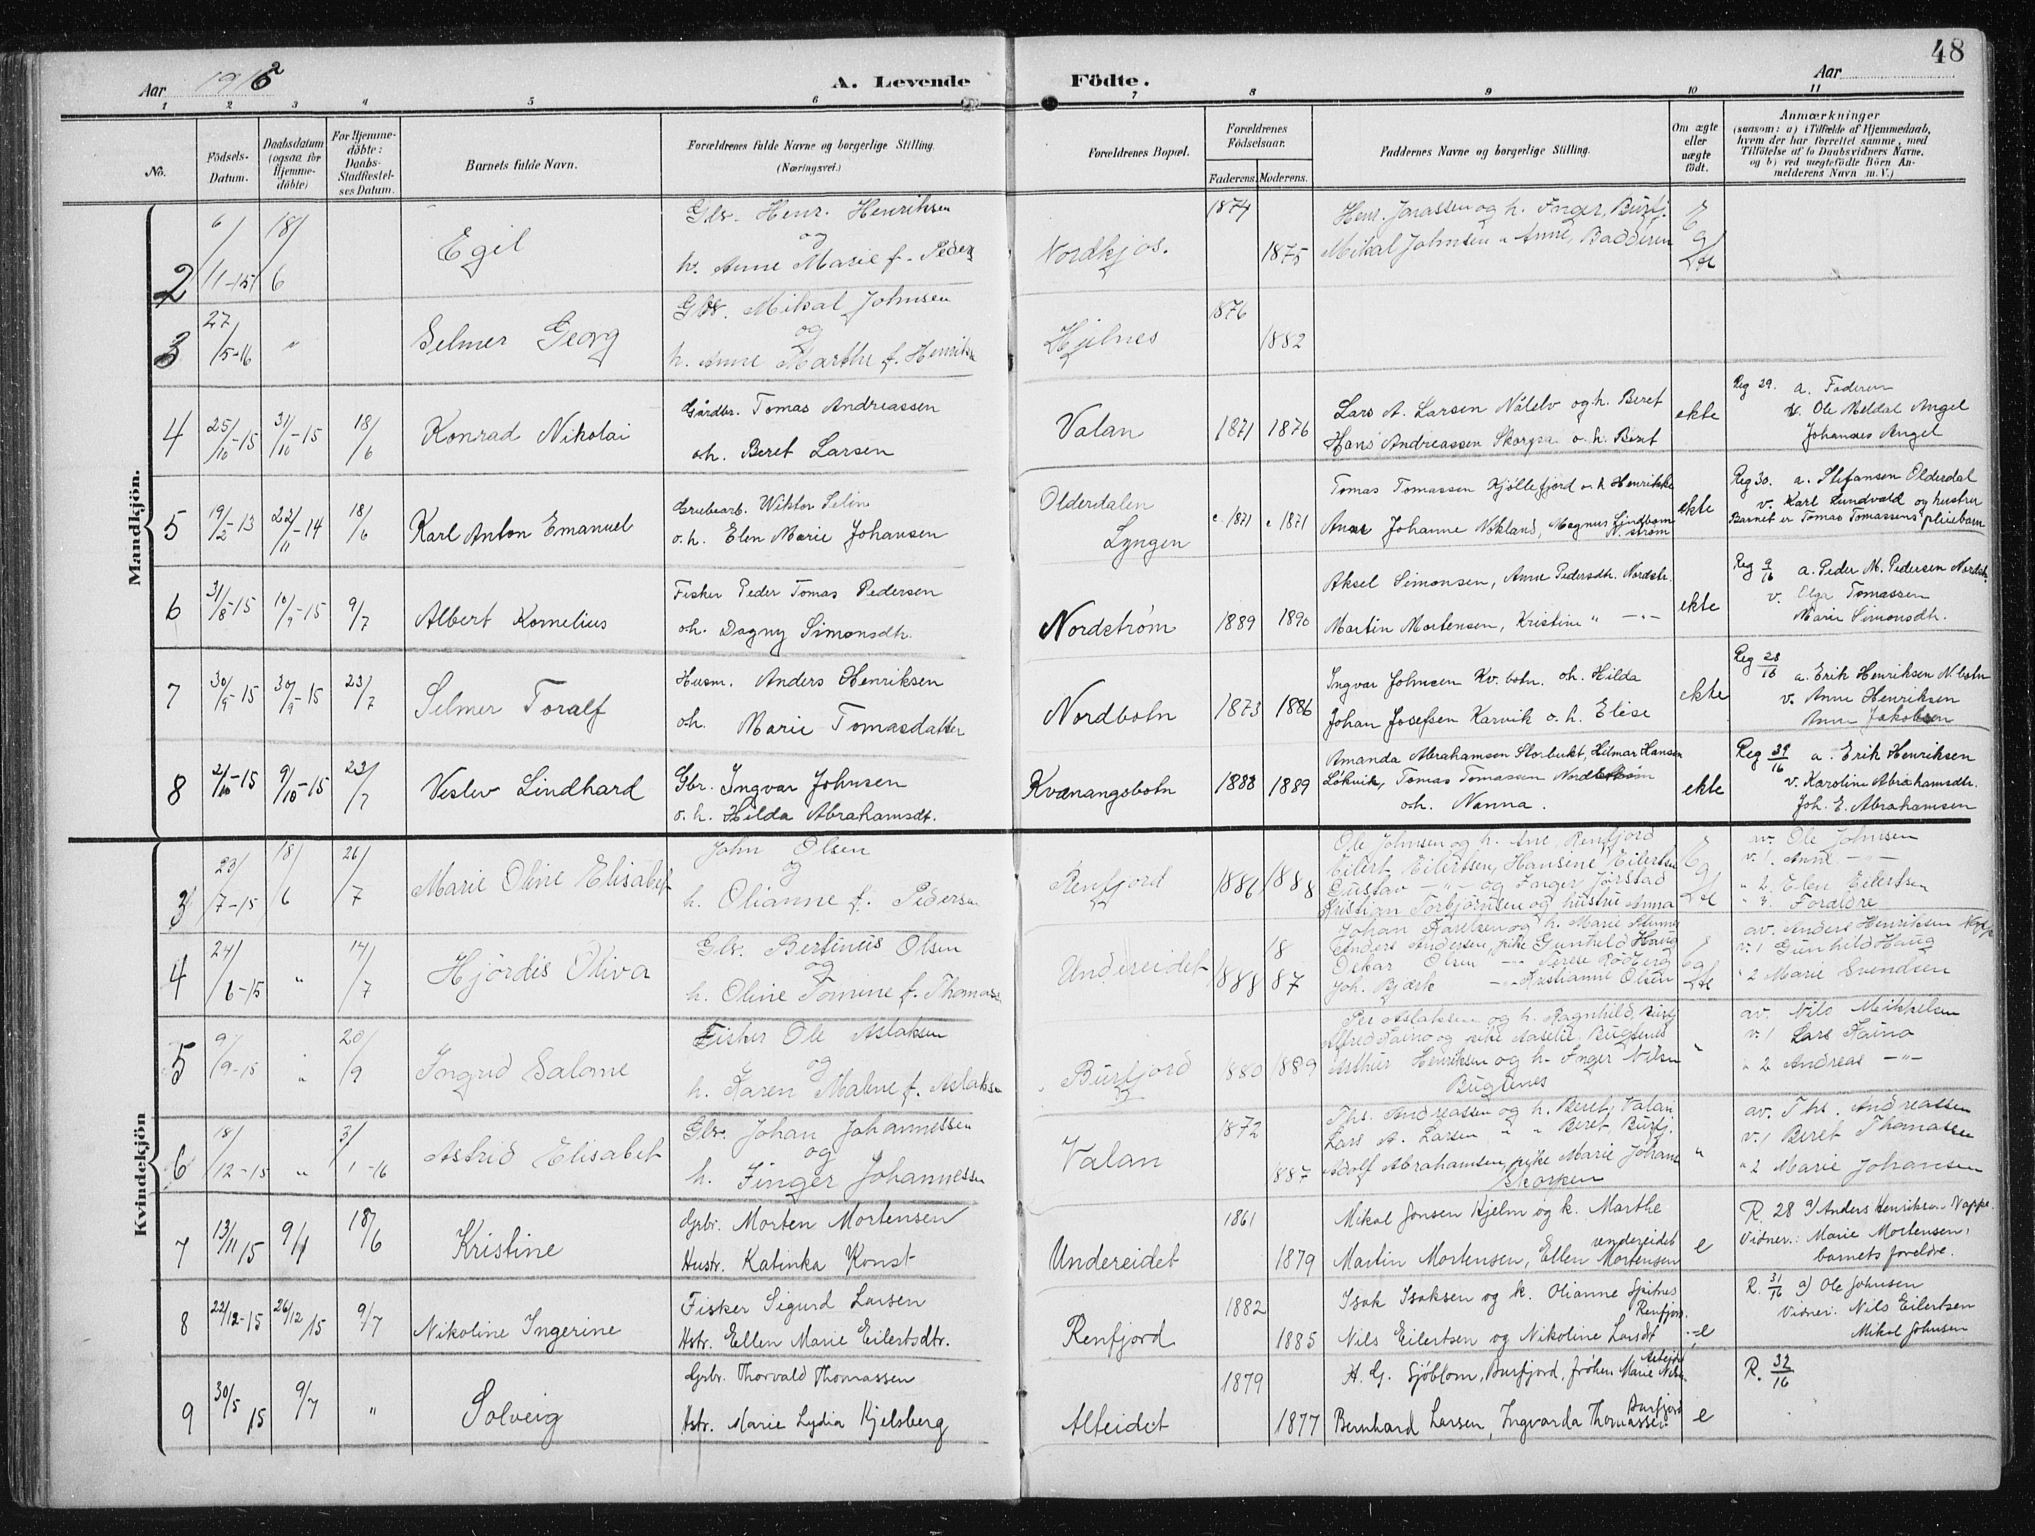 48
Aar 1916 2
A. Levende Födte.
Aar
1 2 3 4 5 6 7 8 9 10 11
No.
Födsels-Datum.
Daabsdatum (ogsaa for Hjemme-döbte)
For Hjemme-döbte: Daabs-Stadfæstel-ses Datum.
Barnets fulde Navn.
Forældrenes fulde Navne og borgerlige Stilling. (Næringsvei.)
Forældrenes Bopæl.
Forældrenes Födselsaar.
Faderens. Moderens.
Faddernes Navne og borgerlige Stilling.
Om ægte eller uægte födt.
Anmærkninger
(saasom: a) i Tilfælde af Hjemmedaab, hvem der har forrettet samme, med Tilföielse af to Daabsvidners Navne, og b) ved uægtefödte Börn An-melderens Navn m. V.)
Mandkjön.
2 6/11-15 18/6 Egil
Gbr. Henr. Henriksen
og
h. Anne Marie f. Peders
Nordkjos. 1874 1875
Henr. Jonassen og h. Inger, Burfj.
Mikal Johnsen " Anne, Badderen
Egte
3 27/5-16 " Selmer Georg
Gbr. Mikal Johnsen
og
h. Anne Marthe f. Henriks
Hjelnes 1876 1882
4 25/10-15 31/10-15 18/6 Konrad Nikolai
Gårdbr. Tomas Andreassen
oh. Beret Larsen
Valan 1871 1876
Lars A. Larsen Nålelv og h. Beret
Hans Andreassen Skorpa o. h. Beret
ekte
Reg 29. a. Faderen
v. Ole Meldal Angel
Johannes Angel
5 19/2-13 22/11-14 18/6 Karl Anton Emanuel
Grubearb. Wiktor Selin
o. h. Elen Marie Johansen
Olderdalen
Lyngen
c. 1871 c 1871
Tomas Tomassen Kjøllefjord o. h Henrikke
Anne Johanne Nokland, Magnus Lindbom N. strøm
ekte
Reg 30. a. Stefansen Olderdal
v. Karl Lundvald og hustru
Barnet er Tomas Tomassens pleiebarn
6 31/8-15 10/9-15 9/7 Albert Kornelius
Fisker Peder Tomas Pedersen
oh. Dagny Simonsdh.
Nordstrøm 1889 1890
Aksel Simonsen, Anne Pedersdh. Nordstr.
Martin Mortensen, Kristine " -"-
ekte
Reg 9/16 a. Peder M. Pedersen Nordstr.
v. Olga Tomassen
Marie Simonsdh.
7 30/9-15 30/9-15 23/7 Selmer Toralf
Husm. Anders Henriksen
oh. Marie Tomasdatter
Nordbotn 1873 1886
Ingvar Johnsen Kv. botn. oh. Hilda
Johan Josefsen Karvik o. h. Elise
ekte
Reg 28/16 a. Erik Henriksen N. botn
v. Anne Henriksen
Anne Jakobsen
8 2/10-15 9/10-15 23/7 Veslev Lindhard
Gbr. Ingvar Johnsen
o. h. Hilda Abrahamsdt.
Kvænangsbotn 1888 1889
Amanda Abrahamsen Storbukt, Hilmar Hansen
Løkvik, Tomas Tomassen Nordstrøm
oh. Nanna.
ekte
Reg 39/16 a. Erik Henriksen
v. Karoline Abrahamsdtr.
Joh. E. Abrahamsen
Kvindekjön
3 23/7-15 18/6 26/7 Marie Oline Elisabet
John Olsen
og
h. Olianne f. Pedersen
Renfjord 1886 1888
Ole Johnsen og h. Ane, Renfjord
Eilert Eilertsen, Hansene Eilertsen
Gustav -"- og Inger Jørstad
Kristian Torbjørnsen og hustru Anna
Egte
av. Ole Johnsen
v. 1. Anne -"-
" 2. Elen Eilertsen
" 3. Forældre
4 24/6-15 " 14/7 Hjördis Oliva
Gbr. Bertinus Olsen
og
h. Oline Tomine f. Thomas
Undereidet 1888 1887
Johan Karelsen og h. Marie
Anders Andersen, pike Gunhild Haug
Oskar Olsen -"- Terese Rødberg
Joh. Bjærk -"- Kristianne Olsen
Egte
av. Anders Henriksen
v. 1 Gunhild Haug
" 2 Marie Svendsen
5 9/9-15 " 20/9 Ingrid Salome
Fisker Ole Aslaksen
og
h. Karen Malene f. Aslaksen
Burfjord 1880 1889
Per Aslaksen og h. Ragnhild, Burfj
Alfred Kaino og pike Aaselie, Bugtenes
Arthur Henriksen og h. Inger Nilsen
Bugtenes
"
av. Nils Mikkelsen
v. 1 Lars Kaino
" 2 Andreas -"-
6 18/12-15 " 3/1-16 Astrid Elisabet
Gbr. Johan Johannessen
og
h. Jinger Johannessen
Valan 1872 1887
Ths. Andreassen og h. Beret, Valan
Lars A. Larsen " " Beret, Burfj.
Adolf Abrahamsen, pike Marie Johans
Skorpen
"
av. Ths. Andreassen
v. 1 Beret Thomassen
" 2 Marie Johansen
7 13/11 15 9/4 18/6 Kristine
Gbr. Morten Mortensen
Hustr. Katinka Konst
Undereidet 1861 1879
Mikal Jonsen Hjelm og k. Marthe
undereidet
Martin Mortensen, Ellen Mortensen
e
R. 28 a/ Anders Henriksen Nappe.
Vidner: Marie Mortensen,
barnets foreldre.
8 22/12-15 26/12 15 9/7 Nikoline Ingerine
Fisker Sigurd Larsen
Hstr. Ellen Marie Eilertsdtr.
Renfjord 1882 1885
Isak Isaksen og k. Olianne Spitnes
Renfjor.
Nils Eilertsen og Nikoline Larsdt
e
R. 31/16 a) Ole Johnsen
Vidner: Nils Eilertsen
Mikal Johnsen
9 30/5 15 9/7 " Solveig
Gbr. Thorvald Thomassen
Hstr. Marie Lydia Kjelsberg
Alteidet 1879 1877
H. G. Sjöblom, Burfjord, frøken Marie Nils.
Burfjord
Bernhard Larsen, Ingvarda Thomassen
e
R. 32/16